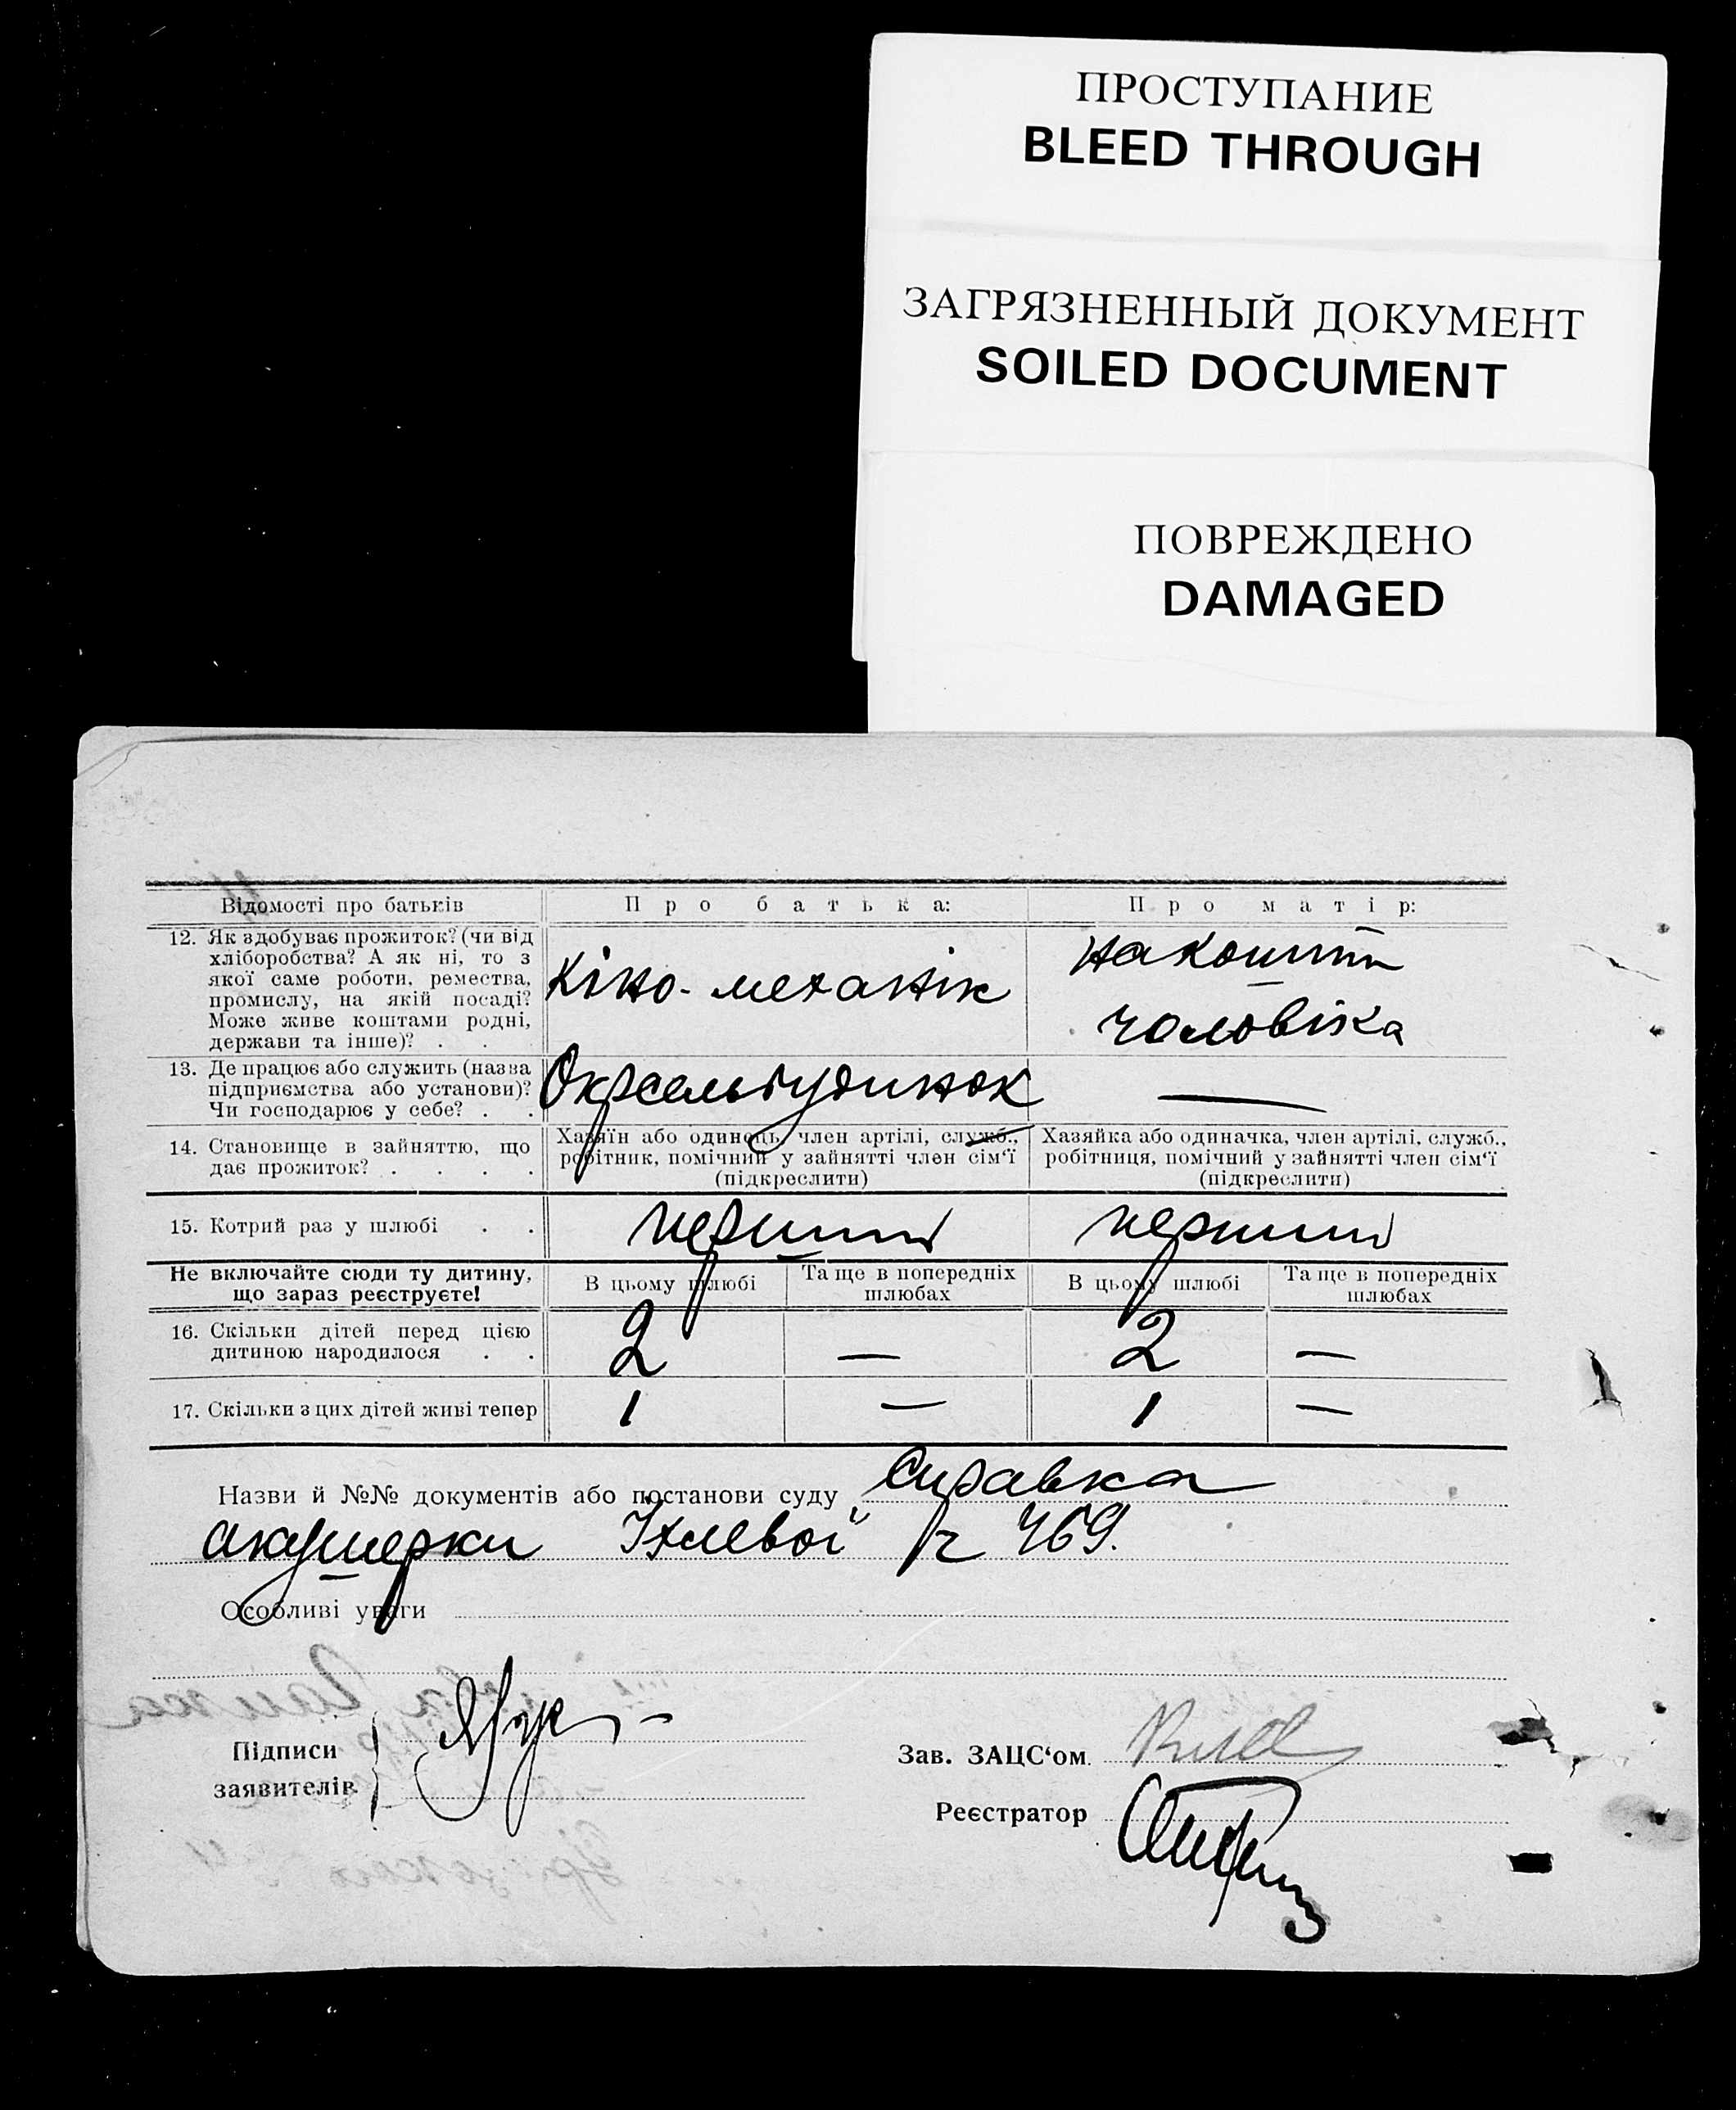 ПРОСТУПАНИЕ
BLEED THROUGH
ЗАГРЯЗНЕННЫЙ ДОКУМЕНТ
SOILED DOCUMENT
ПОВРЕЖДЕНО
DAMAGED
Відомості про батьків Про батька: Про матір:
12. Як здобуває прожиток? (чи від
хліборобства? А як ні, то з
якої саме роботи, ремества,
промислу, на якій посаді?
Може живе коштами родні,
держави та інше)? . .
Кіно-механік
на кошти
чоловіка
13. Де працює або служить (назва
підприємства або установи)?
Чи господарює у себе? . .
Окрсельбудинок —
14. Становище в зайняттю, що
дає прожиток? . . . .
Хазяїн або одинець, член артілі, служб.,
робітник, помічний у зайнятті член сім'ї
(підкреслити)
Хазяйка або одиначка, член артілі, служб.,
робітниця, помічний у зайнятті член сім'ї
(підкреслити)
15. Котрий раз у шлюбі . . перший перший
Не включайте сюди ту дитину,
що зараз реєструєте!
В цьому шлюбі
Та ще в попередніх
шлюбах
В цьому шлюбі
Та ще в попередніх
шлюбах
16. Скільки дітей перед цією
дитиною народилося . .
2 — 2 —
17. Скільки з цих дітей живі тепер 1 — 1 —
Назви й №№ документів або постанови суду Справка
акушерки 469.
Особливі уваги
Підписи
заявителів
Зав. ЗАЦС'ом
Реєстратор